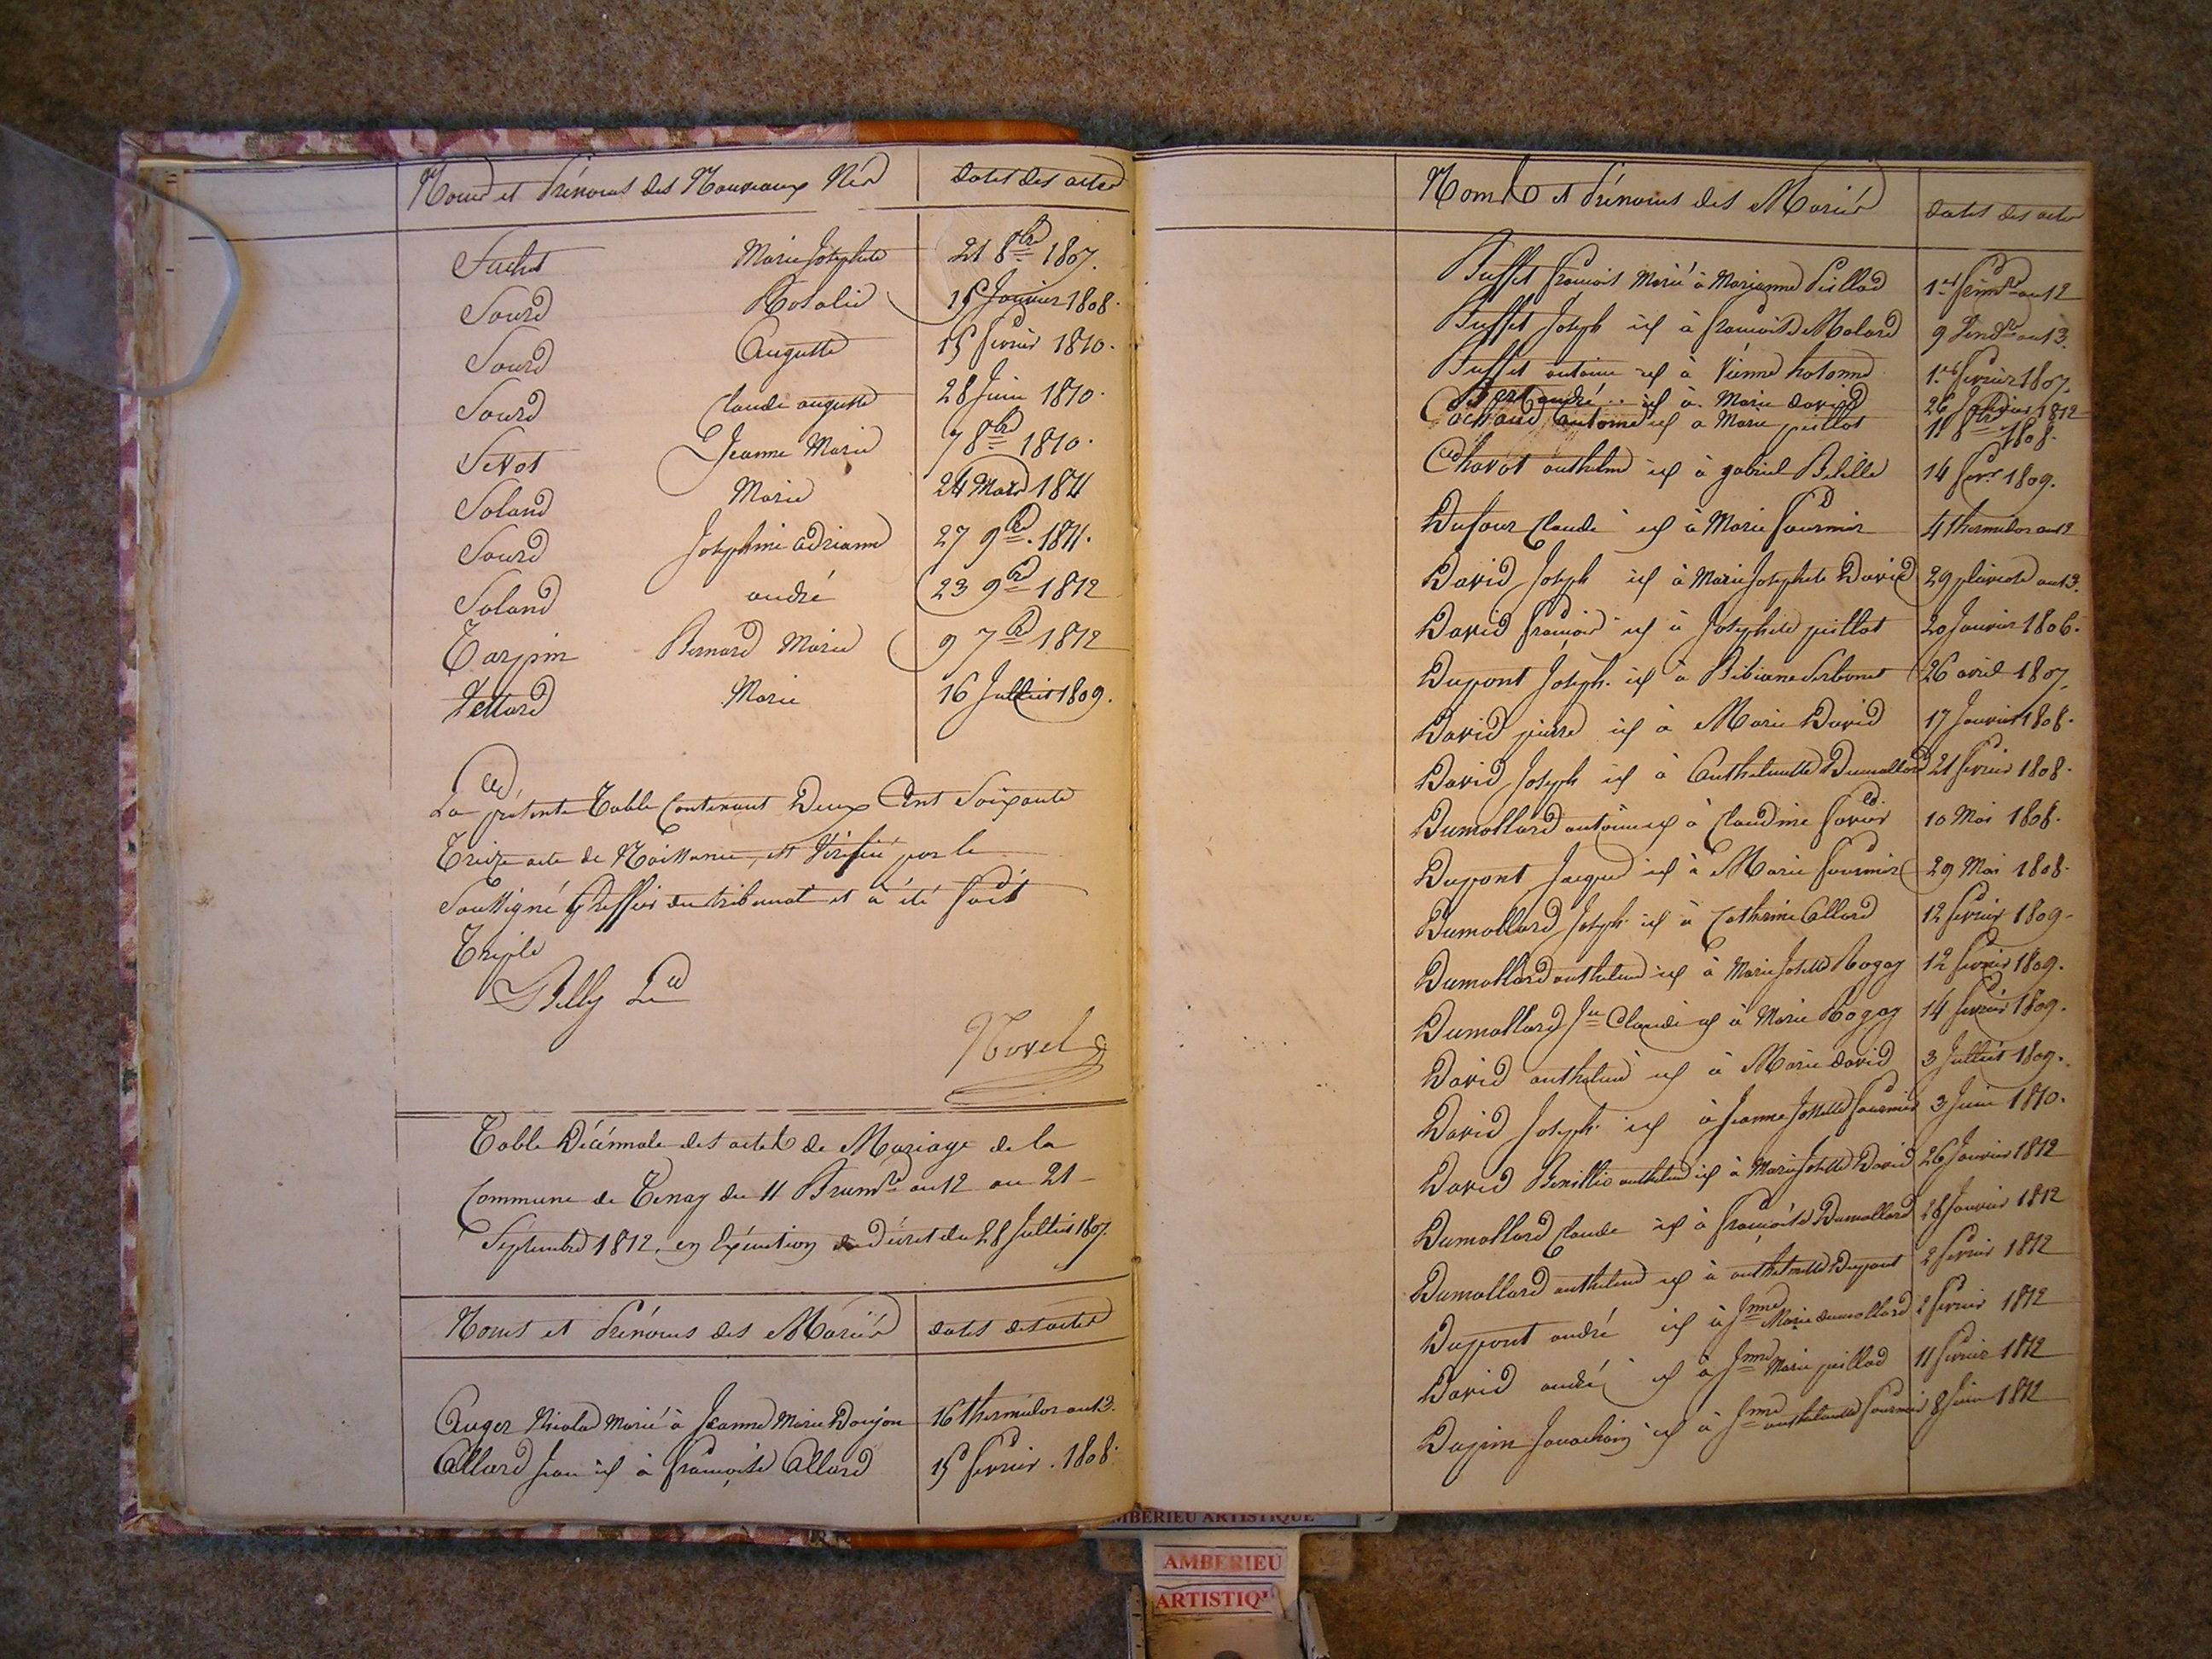 Noms et Prénoms des Nouveaux Nés dates des actes
Suchet Marie Josephete 21 8bre 1807.
Sourd Rosalie 15 Janvier 1808.
Sourd Auguste 15 fevrier 1810.
Sourd Claude auguste 28 Juin 1810.
Sevos Jeanne Marie 7 8bre 1810.
Soland Marie 24 Mars 1811
Sourd Josephine adrianne 27 9bre. 1811.
Soland andré 23 9bre 1812
Tarpin Bernard Marie 9 7bre 1812
Vettard Marie 16 Juillet 1809.
La présente Table Contenant Deux Cent Soixante
Treize acte de Naissance, est Vérifié par le
Soussigné Greffier du tribunal et a été fait
Triple
Billy
Novel
Table Décennale des actes de Mariage de la
Commune de Tenay du 11 Brumre an 12 au 21
Septembre 1812, en Exécution du décret du 28 Juillet 1807.
Noms et Prénoms des Mariés dates des actes
Auger Nicolas Marié à Jeanne Marie Doujon 16 thermidor an 13.
Allard Jean id à françoise Allard 15 fevrier. 1808.
Noms et Prénoms des Mariés dates des actes
Buffet francois Marié à Marianne Peillod 1er an 12
Buffet Joseph id à francoise Molard 9 Vendre an 13.
Buffet antoine id à 1er fevrier 1807.
andré .. id à Marie david 26 Janvier 1812
Cochaud antoine id à Marie peillot 11 8bre 1808.
Chavot anthelme id à gabriel 14 fevr 1809.
Dufour Claude id à Marie fournier 4 thermidor an 12
David Joseph id à Marie Josephete David 29 pluviose an 13.
David francois id à Josephete peillot 20 Janvier 1806.
Dupont Joseph. id à Bibiane Serbonet 26 avril 1807.
David pierre id à Marie David 17 Janvier 1808.
David Joseph id à Anthelmette Dumollard 21 fevrier 1808.
Dumollard antoine id à Claudine favier 10 Mai 1808.
Dupont Jacque id à Marie fournier 29 Mai 1808.
Dumollard Joseph id à Catherine Allard 12 fevrier 1809.
Dumollard anthelme id à Marie Josette Bogay 12 fevrier 1809.
Dumollard Jn Claude id à Marie Bogay 14 fevrier 1809.
David anthelme id à Marie david 3 Juillet 1809.
David Joseph id à Jeanne Josette fournier 3 Juin 1810.
David Benillie anthelme id à Marie Josette David 26 Janvier 1812
Dumollard Claude id à françoise Dumollard 28 Janvier 1812
Dumollard anthelme id à anthelmette Dupont 2 fevrier 1812
Dupont andré id à Jnne Marie dumollard 2 fevrier 1812
David andré id à Jnne Marie peillod 11 fevrier 1812
Dupin Jouachain id à Jnne anthelmette fournier 8 Juin 1812
AMBERIEU ARTISTIQUE
AMBERIEU
ARTISTIQU